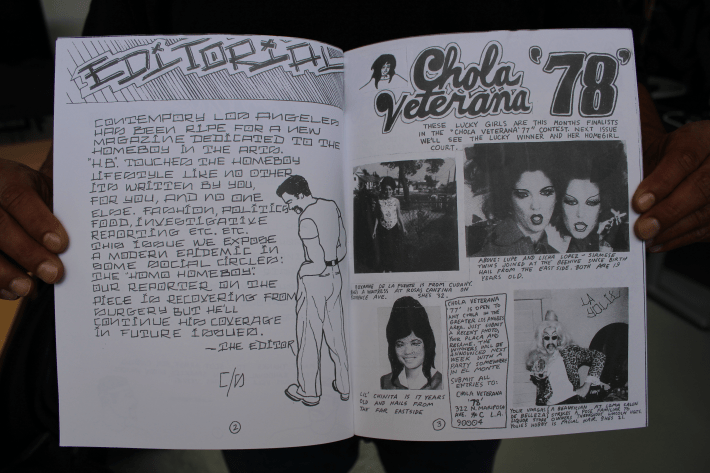 EDITORIAL
CONTEMPORY LOS ANGELES
HAS BEEN RIPE FOR A NEW
MAGAZINE DEDICATED TO THE
HOMEBOY IN THE ARTS.
"H.B." TOUCHES THE HOMEBOY
LIFESTYLE LIKE NO OTHER
ITS WRITTEN BY YOU,
FOR YOU, AND NO ONE
ELSE. FASHION, POLITICS
FOOD, INVESTIGATIVE
REPORTING ETC. ETC.
THIS ISSUE WE EXPOSE
A MODERN EPIDEMIC IN
SOME SOCIAL CIRCLES:
THE "HOMO HOMEBOY".
OUR REPORTER ON THE
PIECE IS RECOVERING FROM
SURGERY BUT HE'LL
CONTINUE HIS COVERAGE
IN FUTURE ISSUES.
~THE EDITOR
C/S
2
Chola
Veterana
'78'
THESE LUCKY GIRLS ARE THIS MONTHS FINALISTS
IN THE "CHOLA VETERANA '77" CONTEST. NEXT ISSUE
WE'LL SEE THE LUCKY WINNER AND HER HOMEGIRL
COURT.
ABOVE: LUPE AND LICHA LOPEZ - SIAMESE
TWINS JOINED AT THE BEEHIVE SINCE BIRTH
HAIL FROM THE EAST SIDE. BOTH ARE 19
YEARS OLD.
DE LA FUENTE IS FROM CUDAHY.
SHE'S 32.
LIL' CHINITA IS 17 YEARS
OLD AND HAILS FROM
THE FAR EASTSIDE
CHOLA VETERANA
'77' IS OPEN TO
ANY CHOLA IN THE
GREATER LOS ANGELES
AREA. JUST SUBMIT
A RECENT PHOTO,
YOUR PLACA AND
RECLAME. THE
WINNERS WILL BE
ANNOUNCED NEXT
WEEK WITH A
PARTY SOMEWHERE
IN EL MONTE
SUBMIT ALL
ENTRIES TO:
CHOLA VETERANA
'78'
322 N. MARIPOSA
AVE. #C L.A.
90004
LA
3